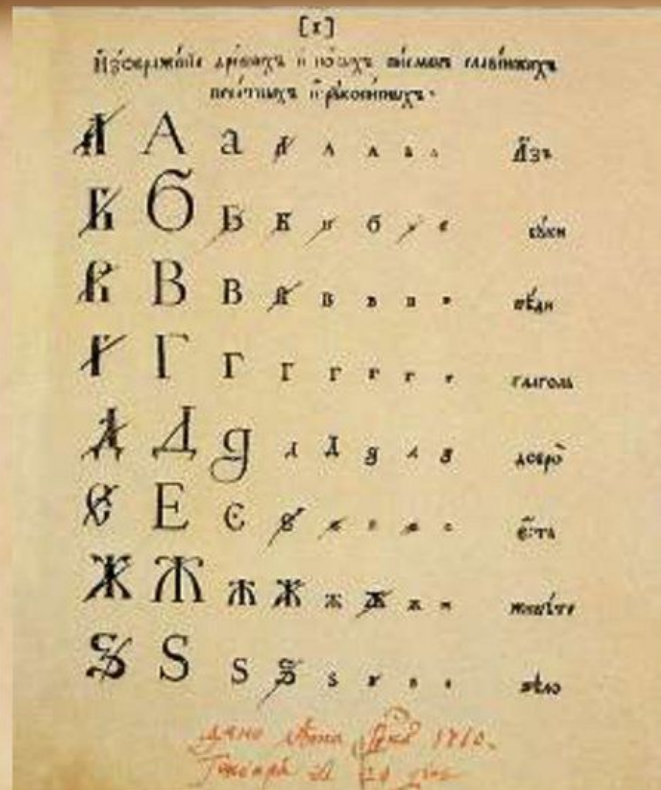 [1]
И҆зѡбраже́нїе дре́внихъ и҆ но́выхъ пи́сменъ славе́нскихъ
печа́тныхъ и҆ рꙋкопи́сныхъ.
А А а А А А а а А҆́зъ
Б Б Б Б б бꙋ́ки
В В В В В в в в вѣ́ди
Г Г Г Г г г г г глаголь
Д Д д д Д д д д добро̀
Є Е є є є́сть
Ж Ж Ж Ж ж ж ж ж живѣ́те
Ѕ Ѕ ѕ Ѕ ѕ ѕ ѕ ѕ ѕѣло
дано лѣта 1710.